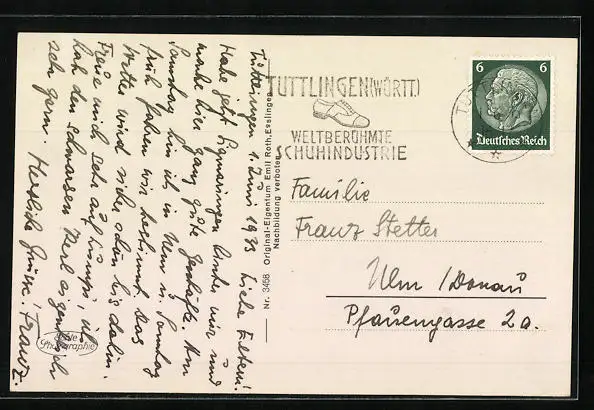 Tuttlingen, 1. Juni 1933 Liebe Eltern!
Habe jetzt Sigmaringen hinter mir und
mache hier ganz gute Geschäfte. Am
Samstag bin ich in Ulm u. Sonntag
früh fahren wir bestimmt. Das
Wetter wird sicher schön bis dahin.
Freue mich sehr auf ich
hab den schwarzen Kerl eigentlich
sehr gern. Herzliche Grüsse! Franz.
Echte Photographie
Nr. 3458 Original-Eigentum Emil Roth, Esslingen
Nachbildung verboten
TUTTLINGEN (WÜRTT)
WELTBERÜHMTE
SCHUHINDUSTRIE
TUTT
6 6
Deutsches Reich
Familie
Franz Stetter
Ulm / Donau
Pfauengasse 2a.